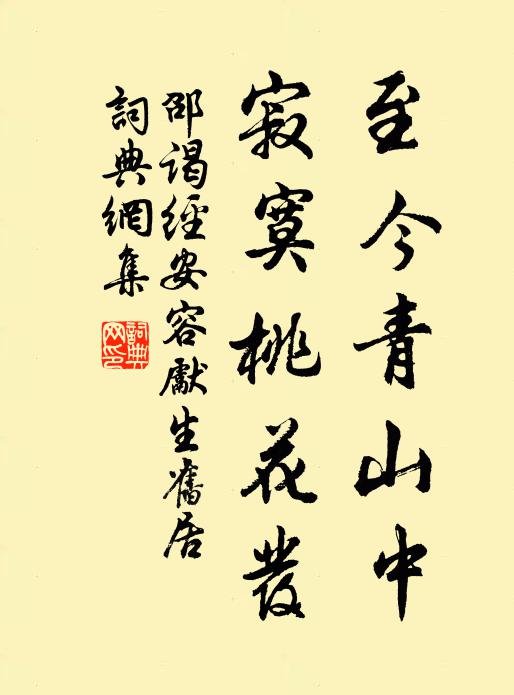 至今青山中
寂寞桃花發
邵謁經安容獻生舊居
詞典網集
詞典網印